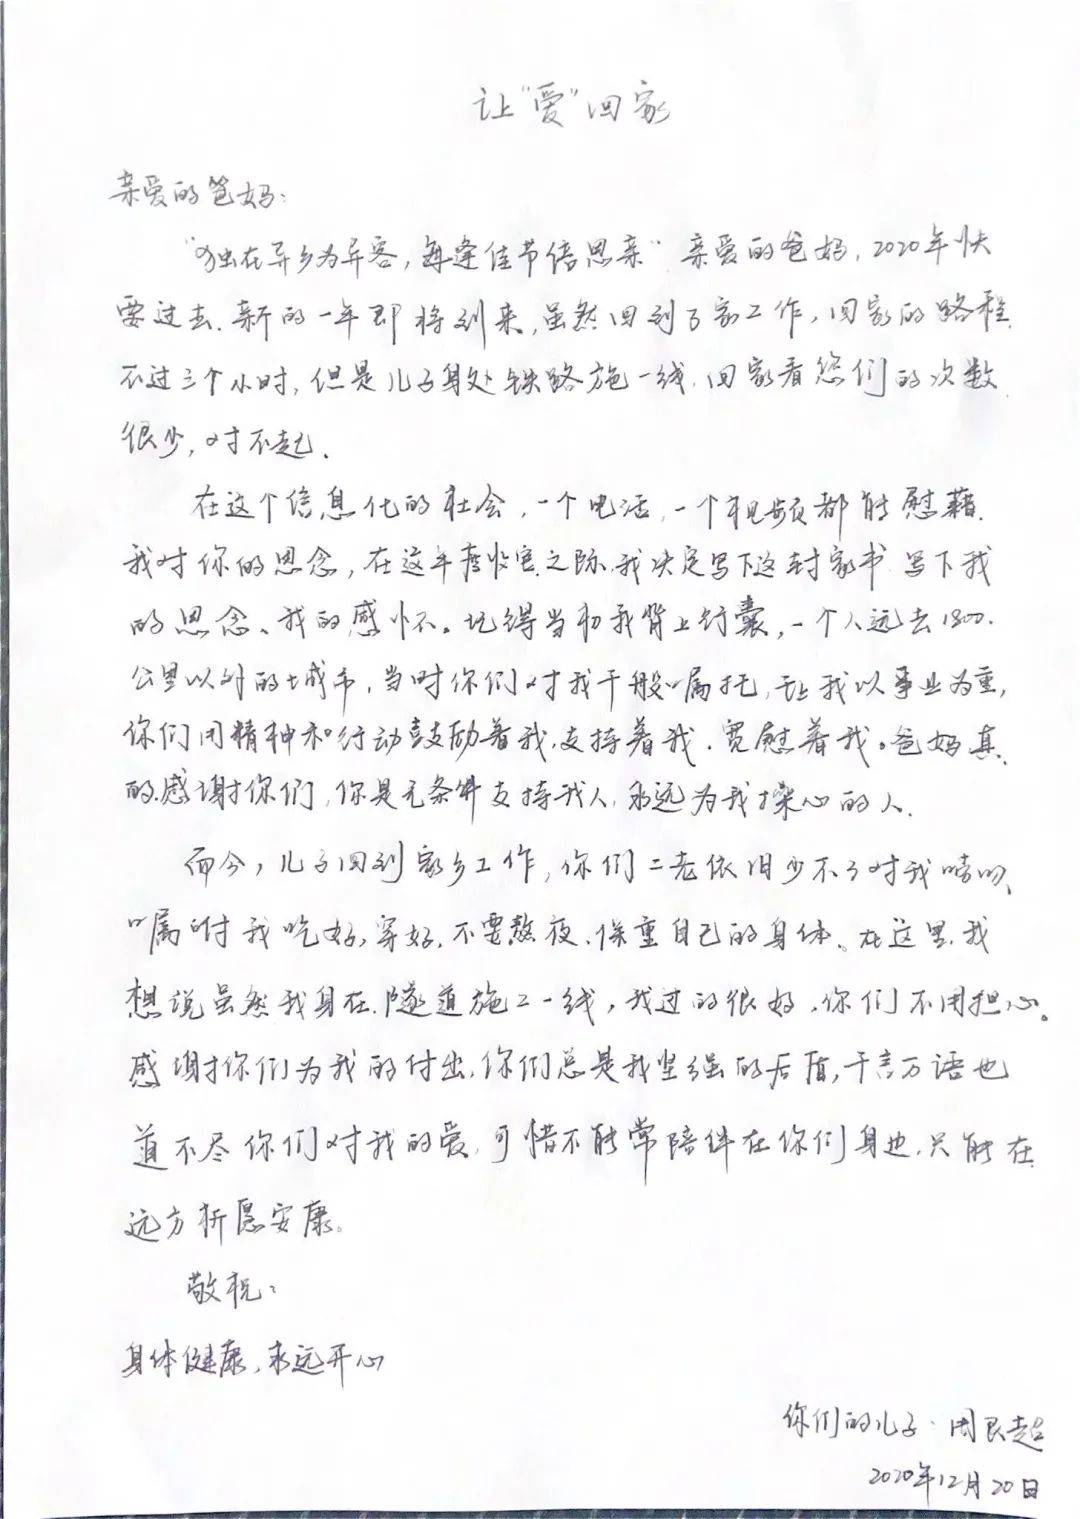 让“爱”回家
亲爱的爸妈：
“独在异乡为异客，每逢佳节倍思亲”亲爱的爸妈，2020年快
要过去.新的一年即将到来,虽然回到了家工作，回家的路程
不过三个小时，但是儿子身处铁路施一线.回家看您们的次数
很少，对不起.
在这个信息化的社会，一个电话，一个视频都能慰藉
我对你的思念，在这年度收官之际,我决定写下这封家书 写下我
的思念、我的感怀。记得当初我背上行囊，一个人远去1800
公里以外的城市，当时你们对我千般嘱托，让我以事业为重，
你们用精神和行动鼓励着我,支持着我.宽慰着我。爸妈真
的感谢你们，你是无条件支持我人，永远为我操心的人.
而今，儿子回到家乡工作，你们二老依旧少不了对我唠叨、
嘱咐我吃好，穿好，不要熬夜.保重自己的身体。在这里.我
想说虽然我身在隧道施工一线，我过的很好，你们不用担心。
感谢你们为我的付出,你们总是我坚强的后盾，千言万语也
道不尽你们对我的爱,可惜不能常陪伴在你们身边,只能在
远方祈愿安康。
敬祝：
身体健康，永远开心
你们的儿子·周良超
2020年12月20日